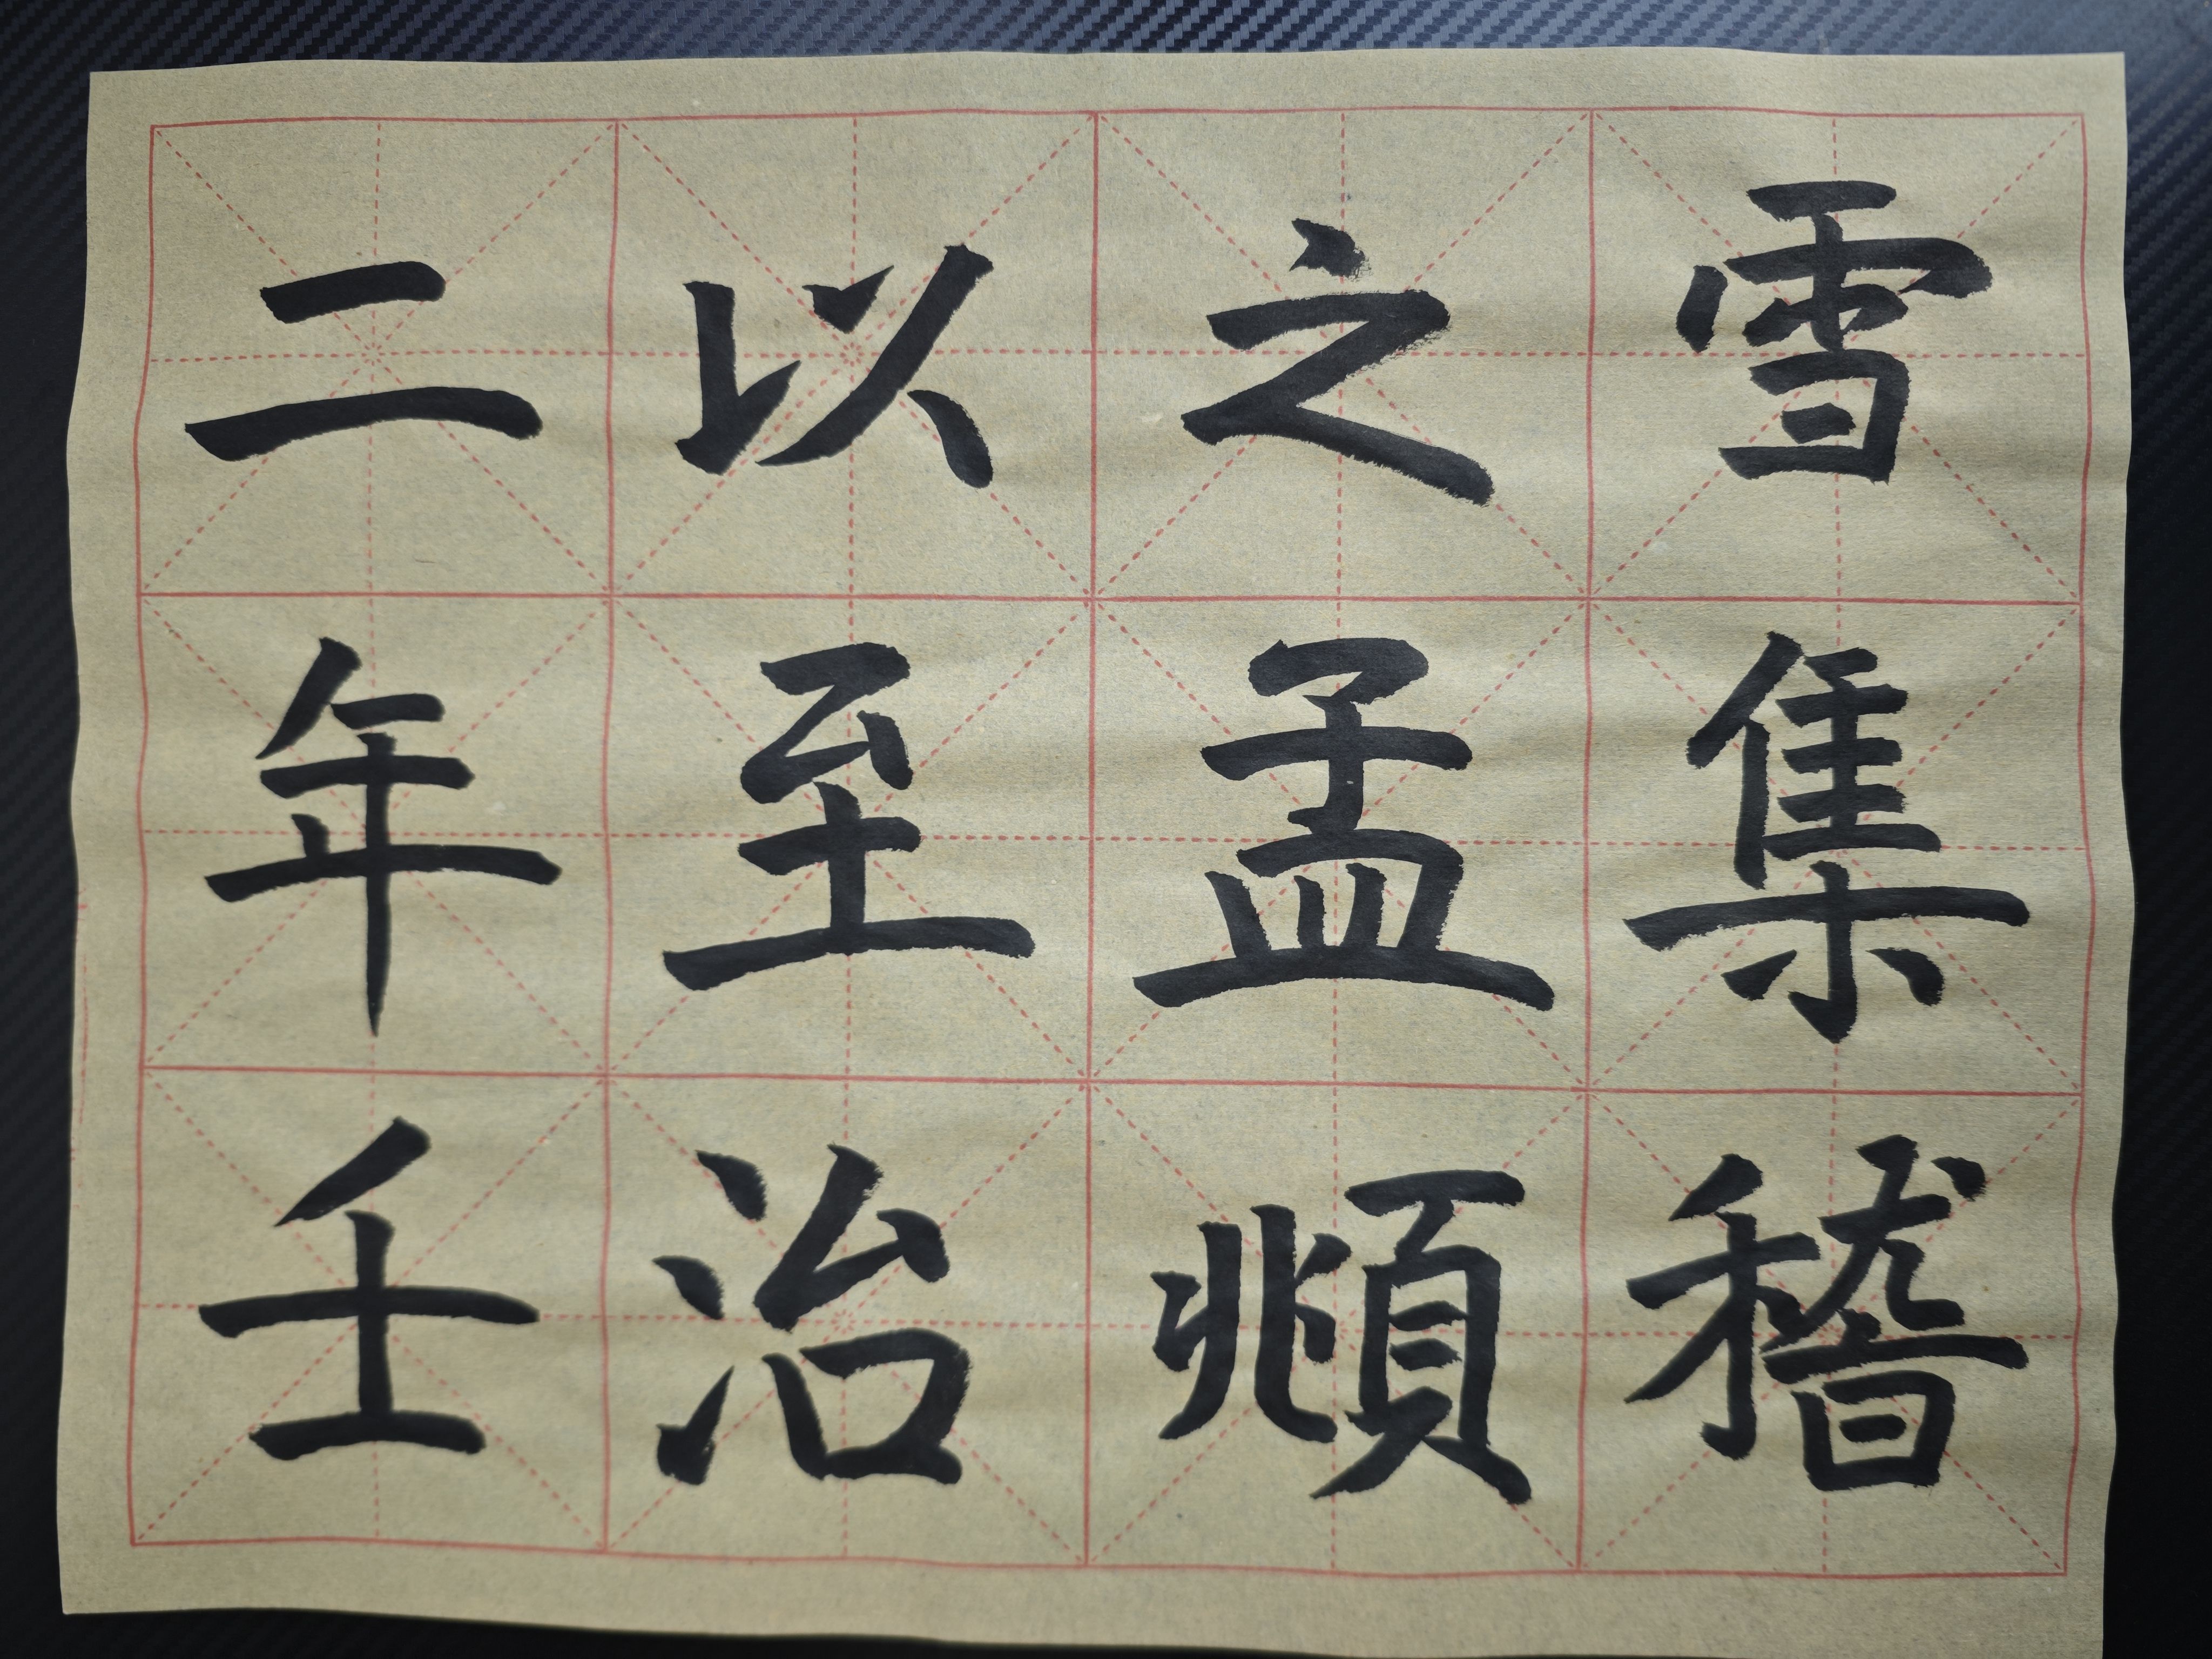 雪集稽
之孟頫
以至治
二年壬